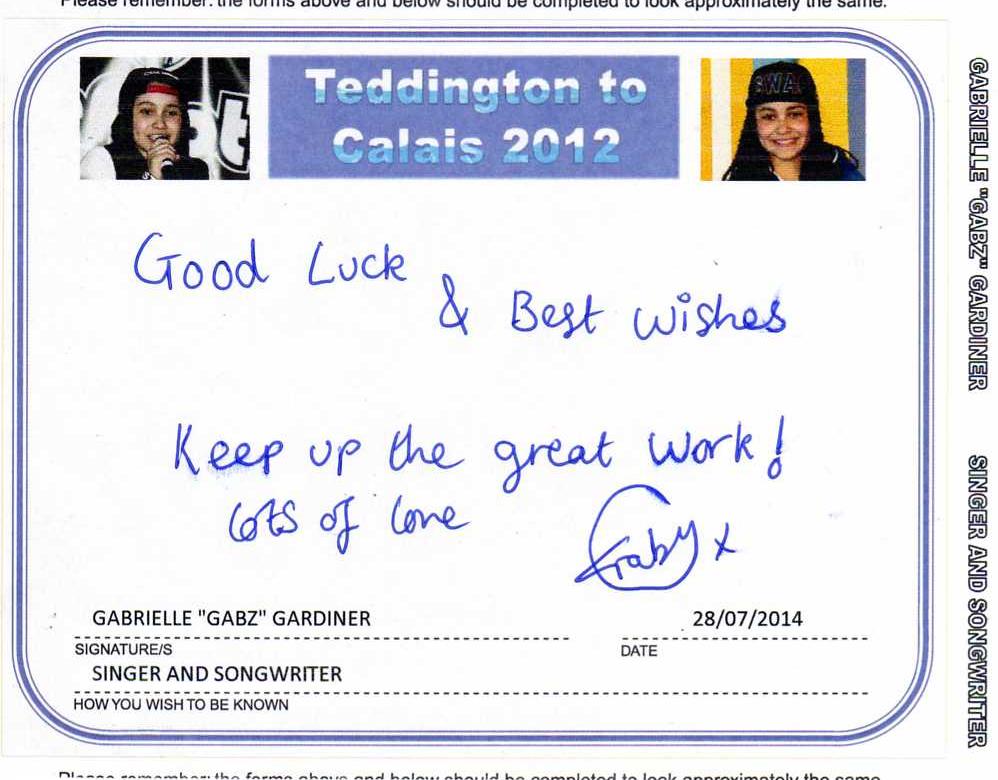 Please remember: the forms above and below should be completed to look approximately the same.
Teddington to
Calais 2012
SWA
Good Luck
& Best Wishes
Keep up the great work!
Lots of love
Gaby x
GABRIELLE "GABZ" GARDINER
28/07/2014
SIGNATURE/S
DATE
SINGER AND SONGWRITER
HOW YOU WISH TO BE KNOWN
Please remember: the forms above and below should be completed to look approximately the same.
GABRIELLE "GABZ" GARDINER
SINGER AND SONGWRITER